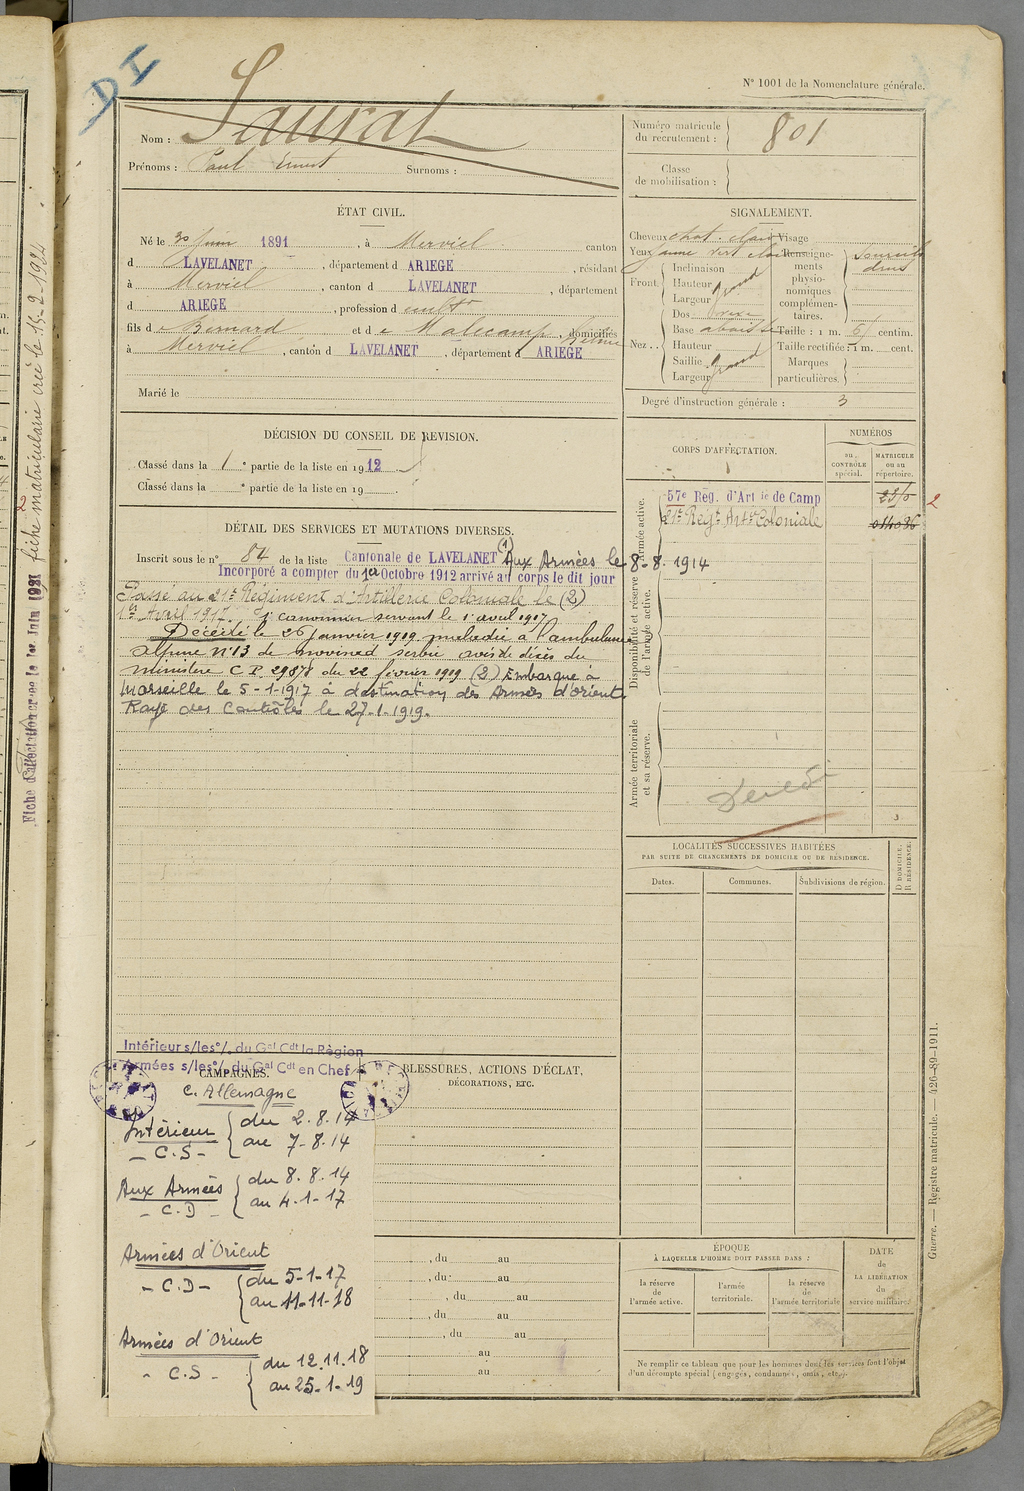 DI
N° 1001 de la Nomenclature générale.
Nom : Saurat
Prénoms : Paul Ernest Surnoms :
Numéro matricule du recrutement : 801
Classe de mobilisation :
ÉTAT CIVIL.
Né le 30 juin 1891, à Merviel canton
d LAVELANET, département d ARIEGE, résidant
à Merviel, canton d LAVELANET, département
d ARIEGE, profession d
fils de Bernard et de Malecamp, domiciliés
à Merviel, canton d LAVELANET, département d ARIEGE
Marié le
SIGNALEMENT.
Cheveux chat. clair Visage
Yeux jaune vert clair
Renseignements physionomiques complémentaires. Sourcils drus
Front. Inclinaison
Hauteur grand
Largeur
Nez... Dos
Base abaissée
Hauteur grand
Saillie
Largeur
Taille : 1 m. 61 centim.
Taille rectifiée : 1 m. cent.
Marques particulières.
Degré d'instruction générale : 3
DÉCISION DU CONSEIL DE REVISION.
Classé dans la 1e partie de la liste en 1912
Classé dans la e partie de la liste en 19
CORPS D'AFFECTATION.
NUMÉROS
au CONTRÔLE spécial.
MATRICULE ou au répertoire.
Armée active.
57e Rég. d'Art ie de Camp
21e Régt Artie Coloniale
2
Disponibilité et réserve de l'armée active.
Armée territoriale et sa réserve.
DÉTAIL DES SERVICES ET MUTATIONS DIVERSES.
Inscrit sous le n° 84 de la liste Cantonale de LAVELANET (1) Aux Armées le 8-8-1914
Incorporé à compter du 1er Octobre 1912 arrivé au corps le dit jour
Passé au 21e Régiment d'Artillerie Coloniale le (2)
1er Avril 1917. 1er canonnier servant le 1er avril 1917
Décédé le 26 janvier 1919 maladie à l'ambulance
alpine n°13 de serbie avis de décès du
ministère C P. du 22 février 1919 (2) Embarqué à
Marseille le 5-1-1917 à destination des Armées d'orient
Rayé des Contrôles le 27-1-1919.
LOCALITÉS SUCCESSIVES HABITÉES
PAR SUITE DE CHANGEMENTS DE DOMICILE OU DE RÉSIDENCE.
Dates.
Communes.
Subdivisions de région.
D DOMICILE. R RÉSIDENCE.
Intérieur s/les o/. du Gal Cdt la Région
Armées s/les o/. du Gal Cdt en Chef
CAMPAGNES.
C. Allemagne
Intérieur
- C.S -
du 2.8.14
au 7-8.14
Aux Armées
- C.D -
du 8.8.14
au 4.1-17
Armées d'Orient
- C.D -
du 5-1-17
au 11-11-18
Armées d'Orient
- C.S -
du 12.11.18
au 25-1-19
BLESSURES, ACTIONS D'ÉCLAT,
DÉCORATIONS, ETC.
, du au
, du au
, du au
, du au
, du au
au
au
ÉPOQUE
À LAQUELLE L'HOMME DOIT PASSER DANS :
la réserve de l'armée active.
l'armée territoriale.
la réserve de l'armée territoriale
DATE de LA LIBÉRATION du service militaire
Ne remplir ce tableau que pour les hommes dont les services font l'objet
d'un décompte spécial (engagés, condamnés, omis, etc.)
Guerre. — Registre matricule. — 426-89-1911.
fiche matriculaire créé le 15-2-1924
Fiche d'affectation créée le 1er Juin 1931